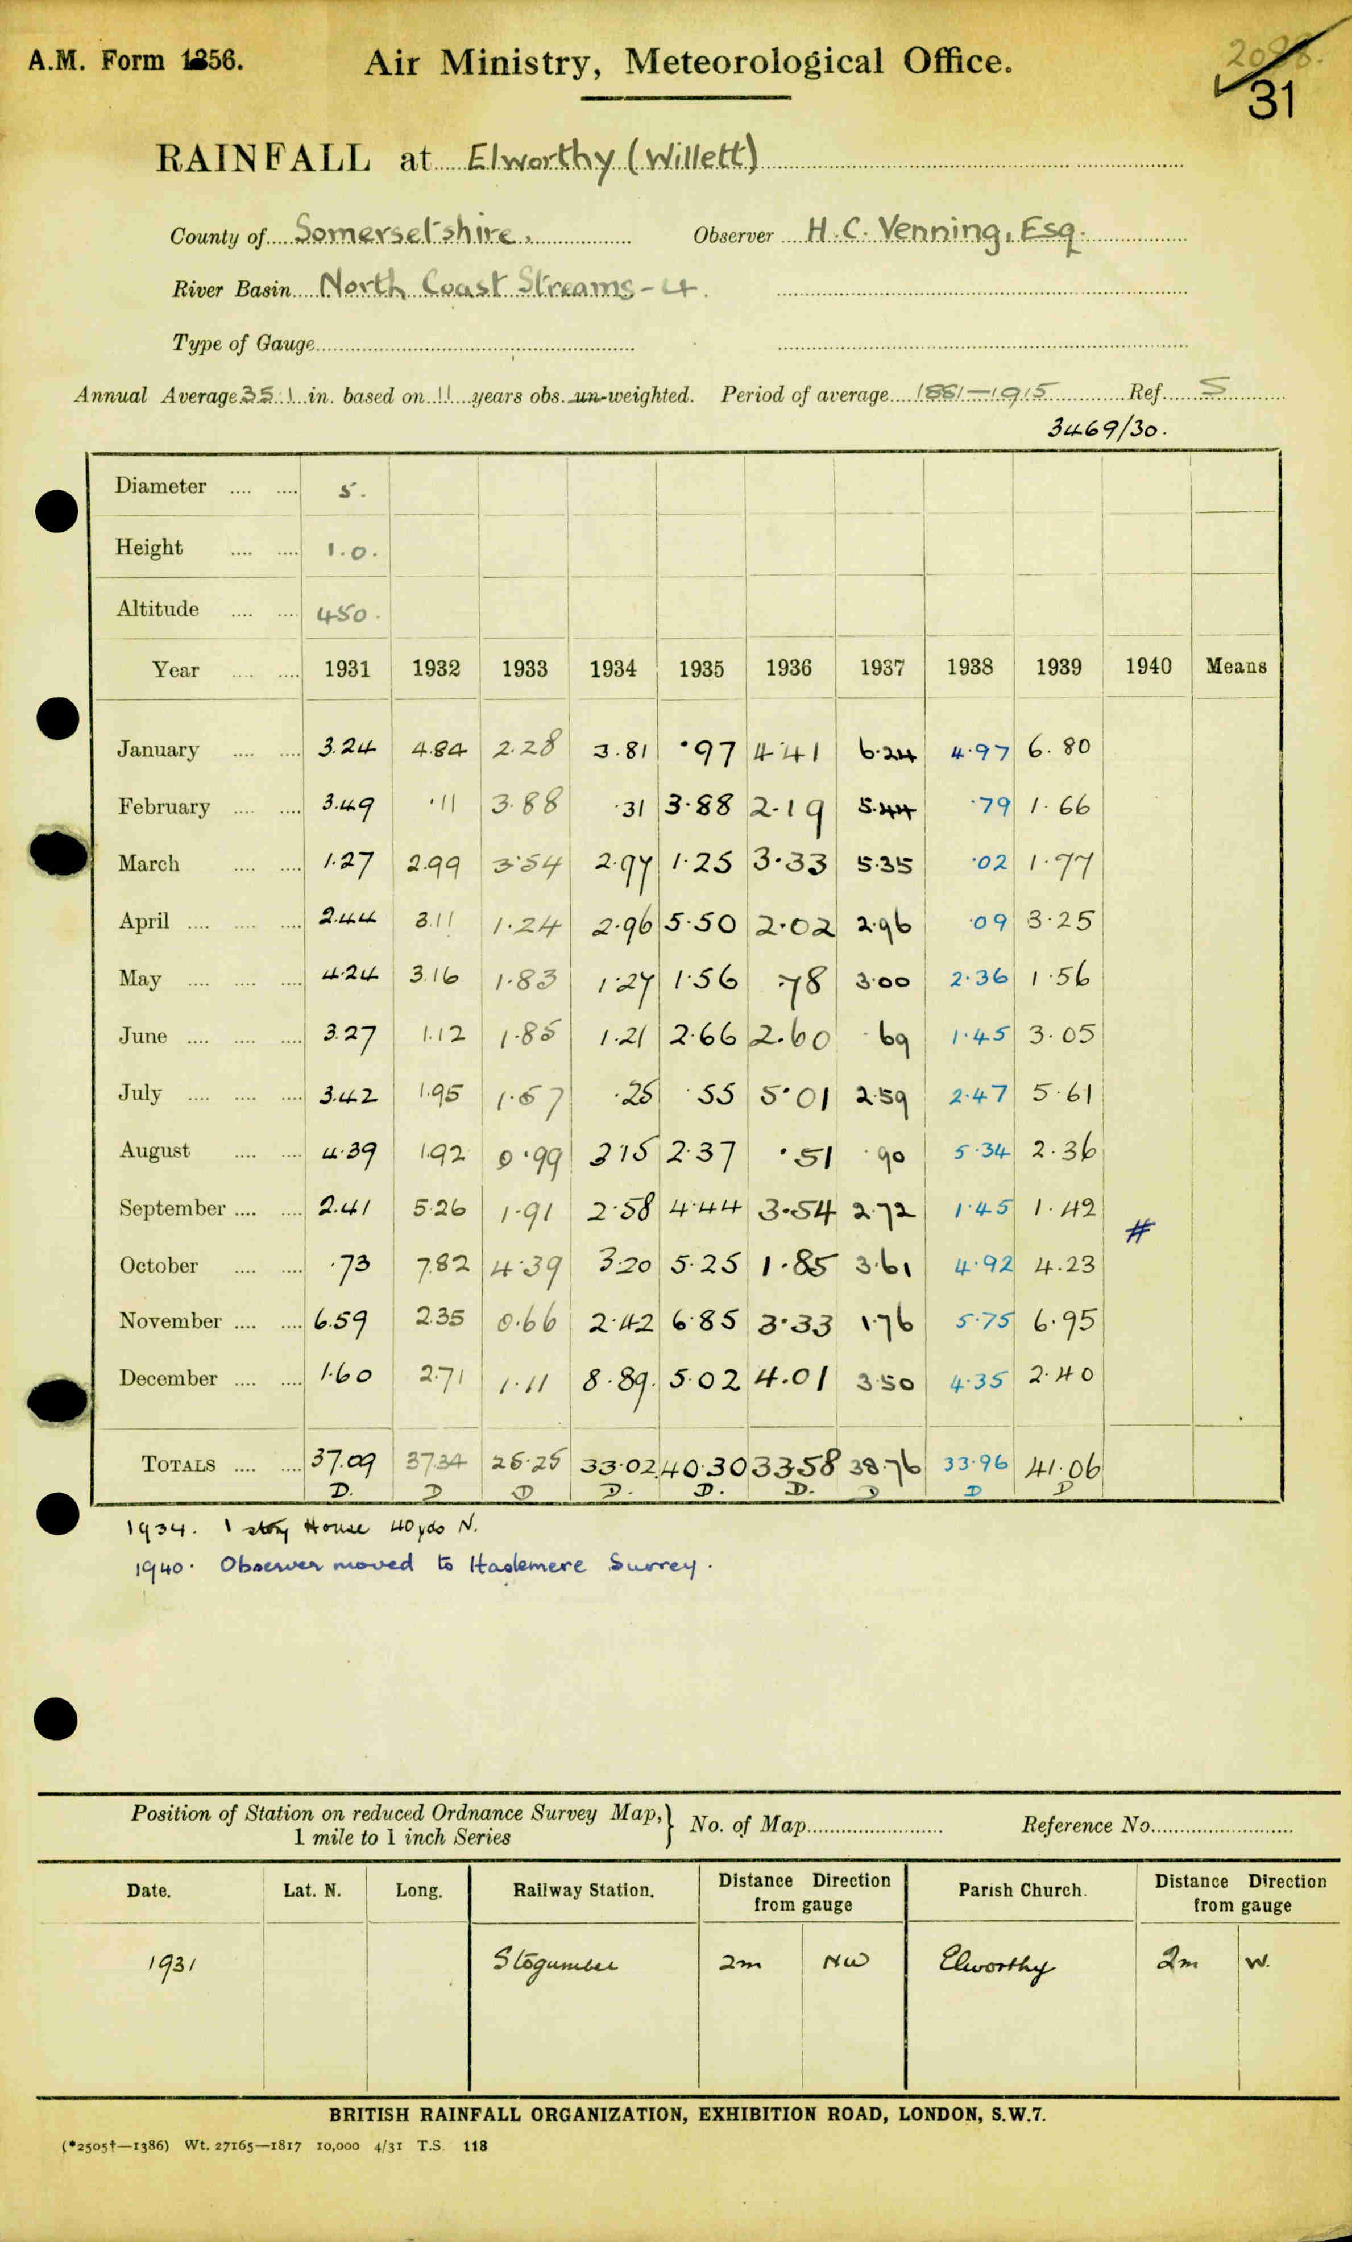 A.M. Form 1356. Air Ministry, Meteorological Office. 2088.
31
RAINFALL at Elworthy (Willett)
County of Somersetshire. Observer H.C. Venning, Esq.
River Basin North Coast Streams - 4.
Type of Gauge
Annual Average 35.1 in. based on 11 years obs. un-weighted. Period of average 1881-1915 Ref. S
3469/30.
Diameter 5.
Height 1.0.
Altitude 450.
Year 1931 1932 1933 1934 1935 1936 1937 1938 1939 1940 Means
January 3.24 4.84 2.28 3.81 .97 4.41 6.24 4.97 6.80
February 3.49 .11 3.88 .31 3.88 2.19 5.44 .79 1.66
March 1.27 2.99 3.54 2.97 1.25 3.33 5.35 .02 1.77
April 2.44 3.11 1.24 2.96 5.50 2.02 2.96 .09 3.25
May 4.24 3.16 1.83 1.27 1.56 .78 3.00 2.36 1.56
June 3.27 1.12 1.85 1.21 2.66 2.60 .69 1.45 3.05
July 3.42 1.95 1.57 .25 .55 5.01 2.59 2.47 5.61
August 4.39 1.92 0.99 3.15 2.37 .51 .90 5.34 2.36
September 2.41 5.26 1.91 2.58 4.44 3.54 2.72 1.45 1.42
#
October .73 7.82 4.39 3.20 5.25 1.85 3.61 4.92 4.23
November 6.59 2.35 0.66 2.42 6.85 3.33 1.76 5.75 6.95
December 1.60 2.71 1.11 8.89. 5.02 4.01 3.50 4.35 2.40
TOTALS 37.09 37.34 25.25 33.02 40.30 33.58 38.76 33.96 41.06
D. D D D. D. D. D D D
1934. 1 story House 40 yds N.
1940. Observer moved to Haslemere Surrey.
Position of Station on reduced Ordnance Survey Map, } No. of Map Reference No.
1 mile to 1 inch Series
Date. Lat. N. Long. Railway Station. Distance Direction from gauge Parish Church. Distance Direction from gauge
1931 Stogumber 2m NW Elworthy 2m W.
BRITISH RAINFALL ORGANIZATION, EXHIBITION ROAD, LONDON, S.W.7.
(*2505†—1386) Wt. 27165—1817 10,000 4/31 T.S. 118